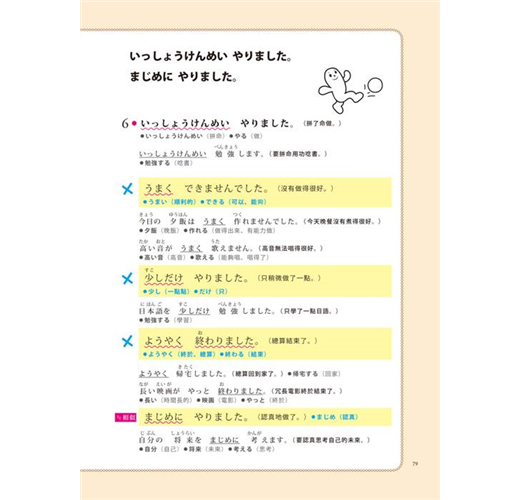 いっしょうけんめい やりました。
まじめに やりました。
6 ● いっしょうけんめい やりました。(拼了命做。)
●いっしょうけんめい(拼命)●やる(做)
べんきょう
いっしょうけんめい 勉強します。(要拼命用功唸書。)
●勉強する(唸書)
うまく できませんでした。(沒有做得很好。)
●うまい(順利的)●できる(可以、能夠)
きょう ゆうはん つく
今日の 夕飯は うまく 作れませんでした。(今天晚餐沒有煮得很好。)
●夕飯(晚飯)●作れる(做得出來、有能力做)
たか おと うた
高い音が うまく 歌えません。(高音無法唱得很好。)
●高い音(高音)●歌える(能夠唱、唱得了)
すこ
少しだけ やりました。(只稍微做了一點。)
●少し(一點點)●だけ(只)
にほんご すこ べんきょう
日本語を 少しだけ 勉強しました。(只學了一點日語。)
●勉強する(學習)
お
ようやく 終わりました。(總算結束了。)
●ようやく(終於、總算)●終わる(結束)
きたく
ようやく 帰宅しました。(總算回到家了。)●帰宅する(回家)
なが えいが お
長い映画が やっと 終わりました。(冗長電影終於結束了。)
●長い(時間長的)●映画(電影)●やっと(終於)
まじめに やりました。(認真地做了。)●まじめ(認真)
じぶん しょうらい かんが
自分の 将来を まじめに 考えます。(要認真思考自己的未來。)
●自分(自己)●将来(未來)●考える(思考)
79